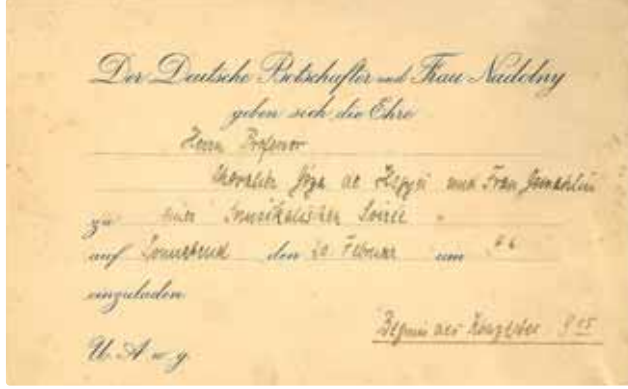 Der Deutsche Botschafter und Frau Nadolny
geben sich die Ehre
Herrn Professor
Chevalier Géza de und Frau Gemahlin
zu einer musikalischen Soiree
auf Sonnabend den 20 Februar um
einzuladen
U. A. w. g.
Beginn des Konzertes 9 15